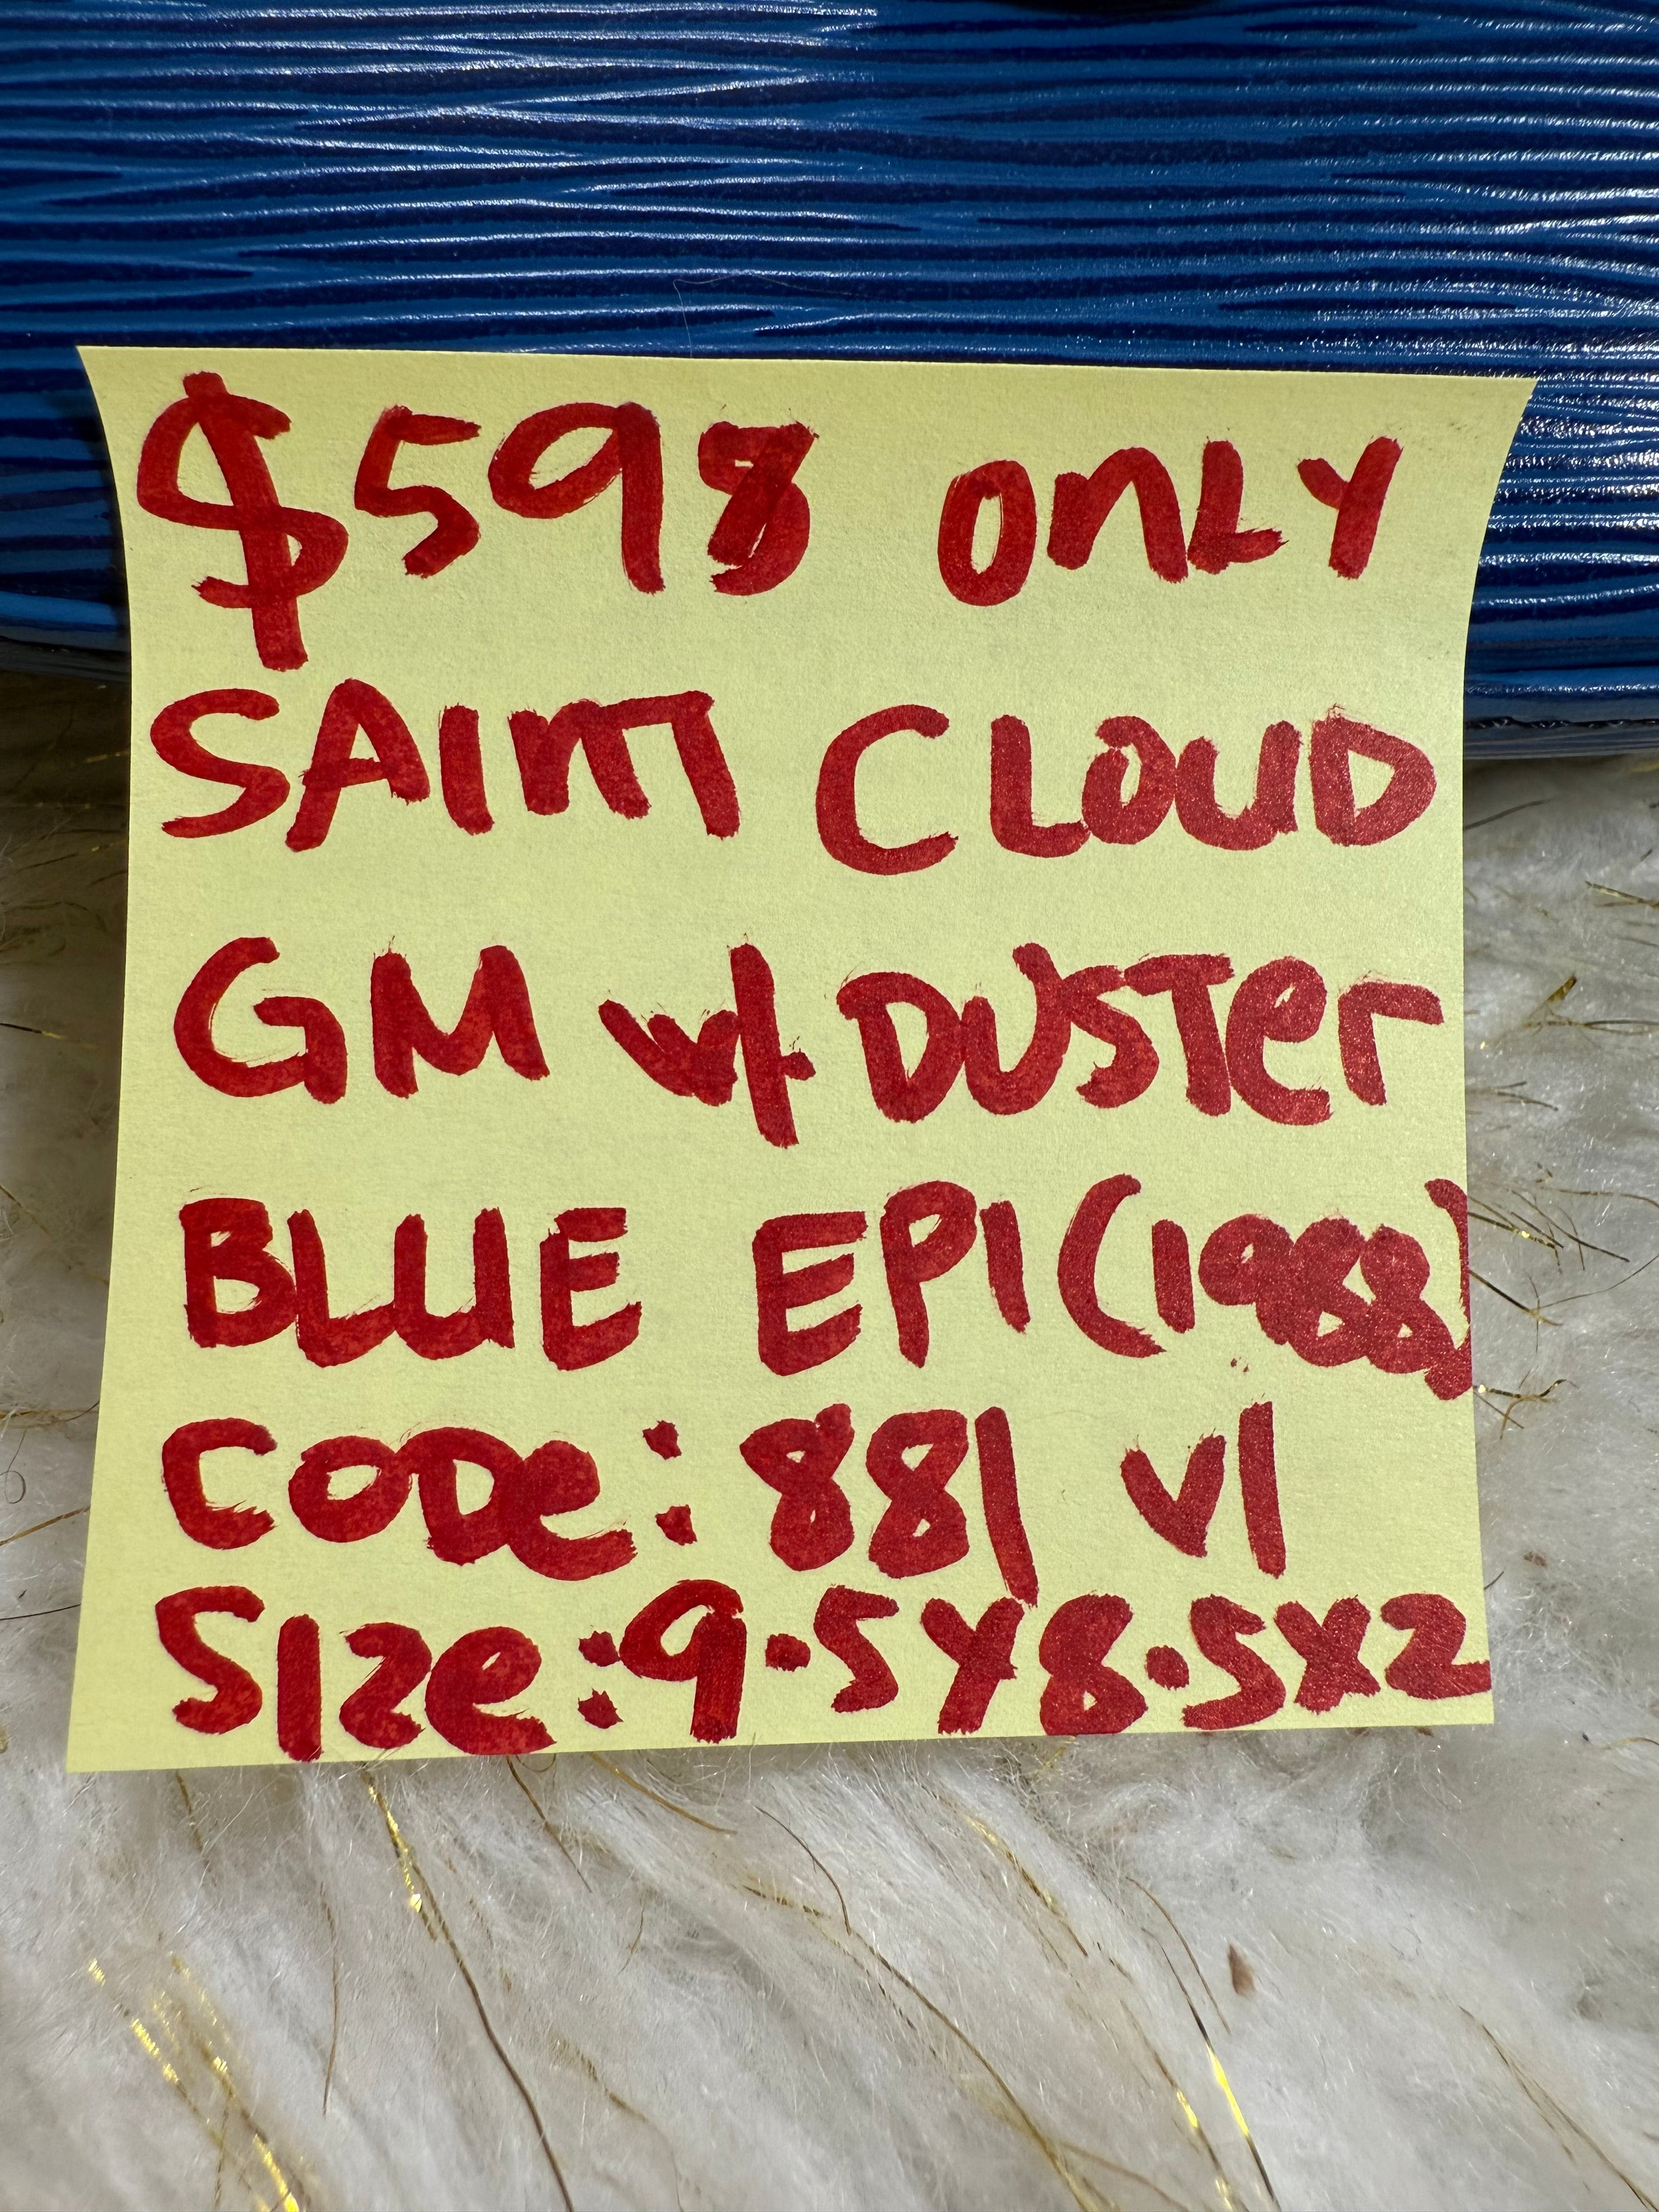 $598 ONLY
SAINT CLOUD
GM w/ DUSTer
BLUE EPI (1988)
CODe: 881 VI
SIze: 9.5x8.5x2